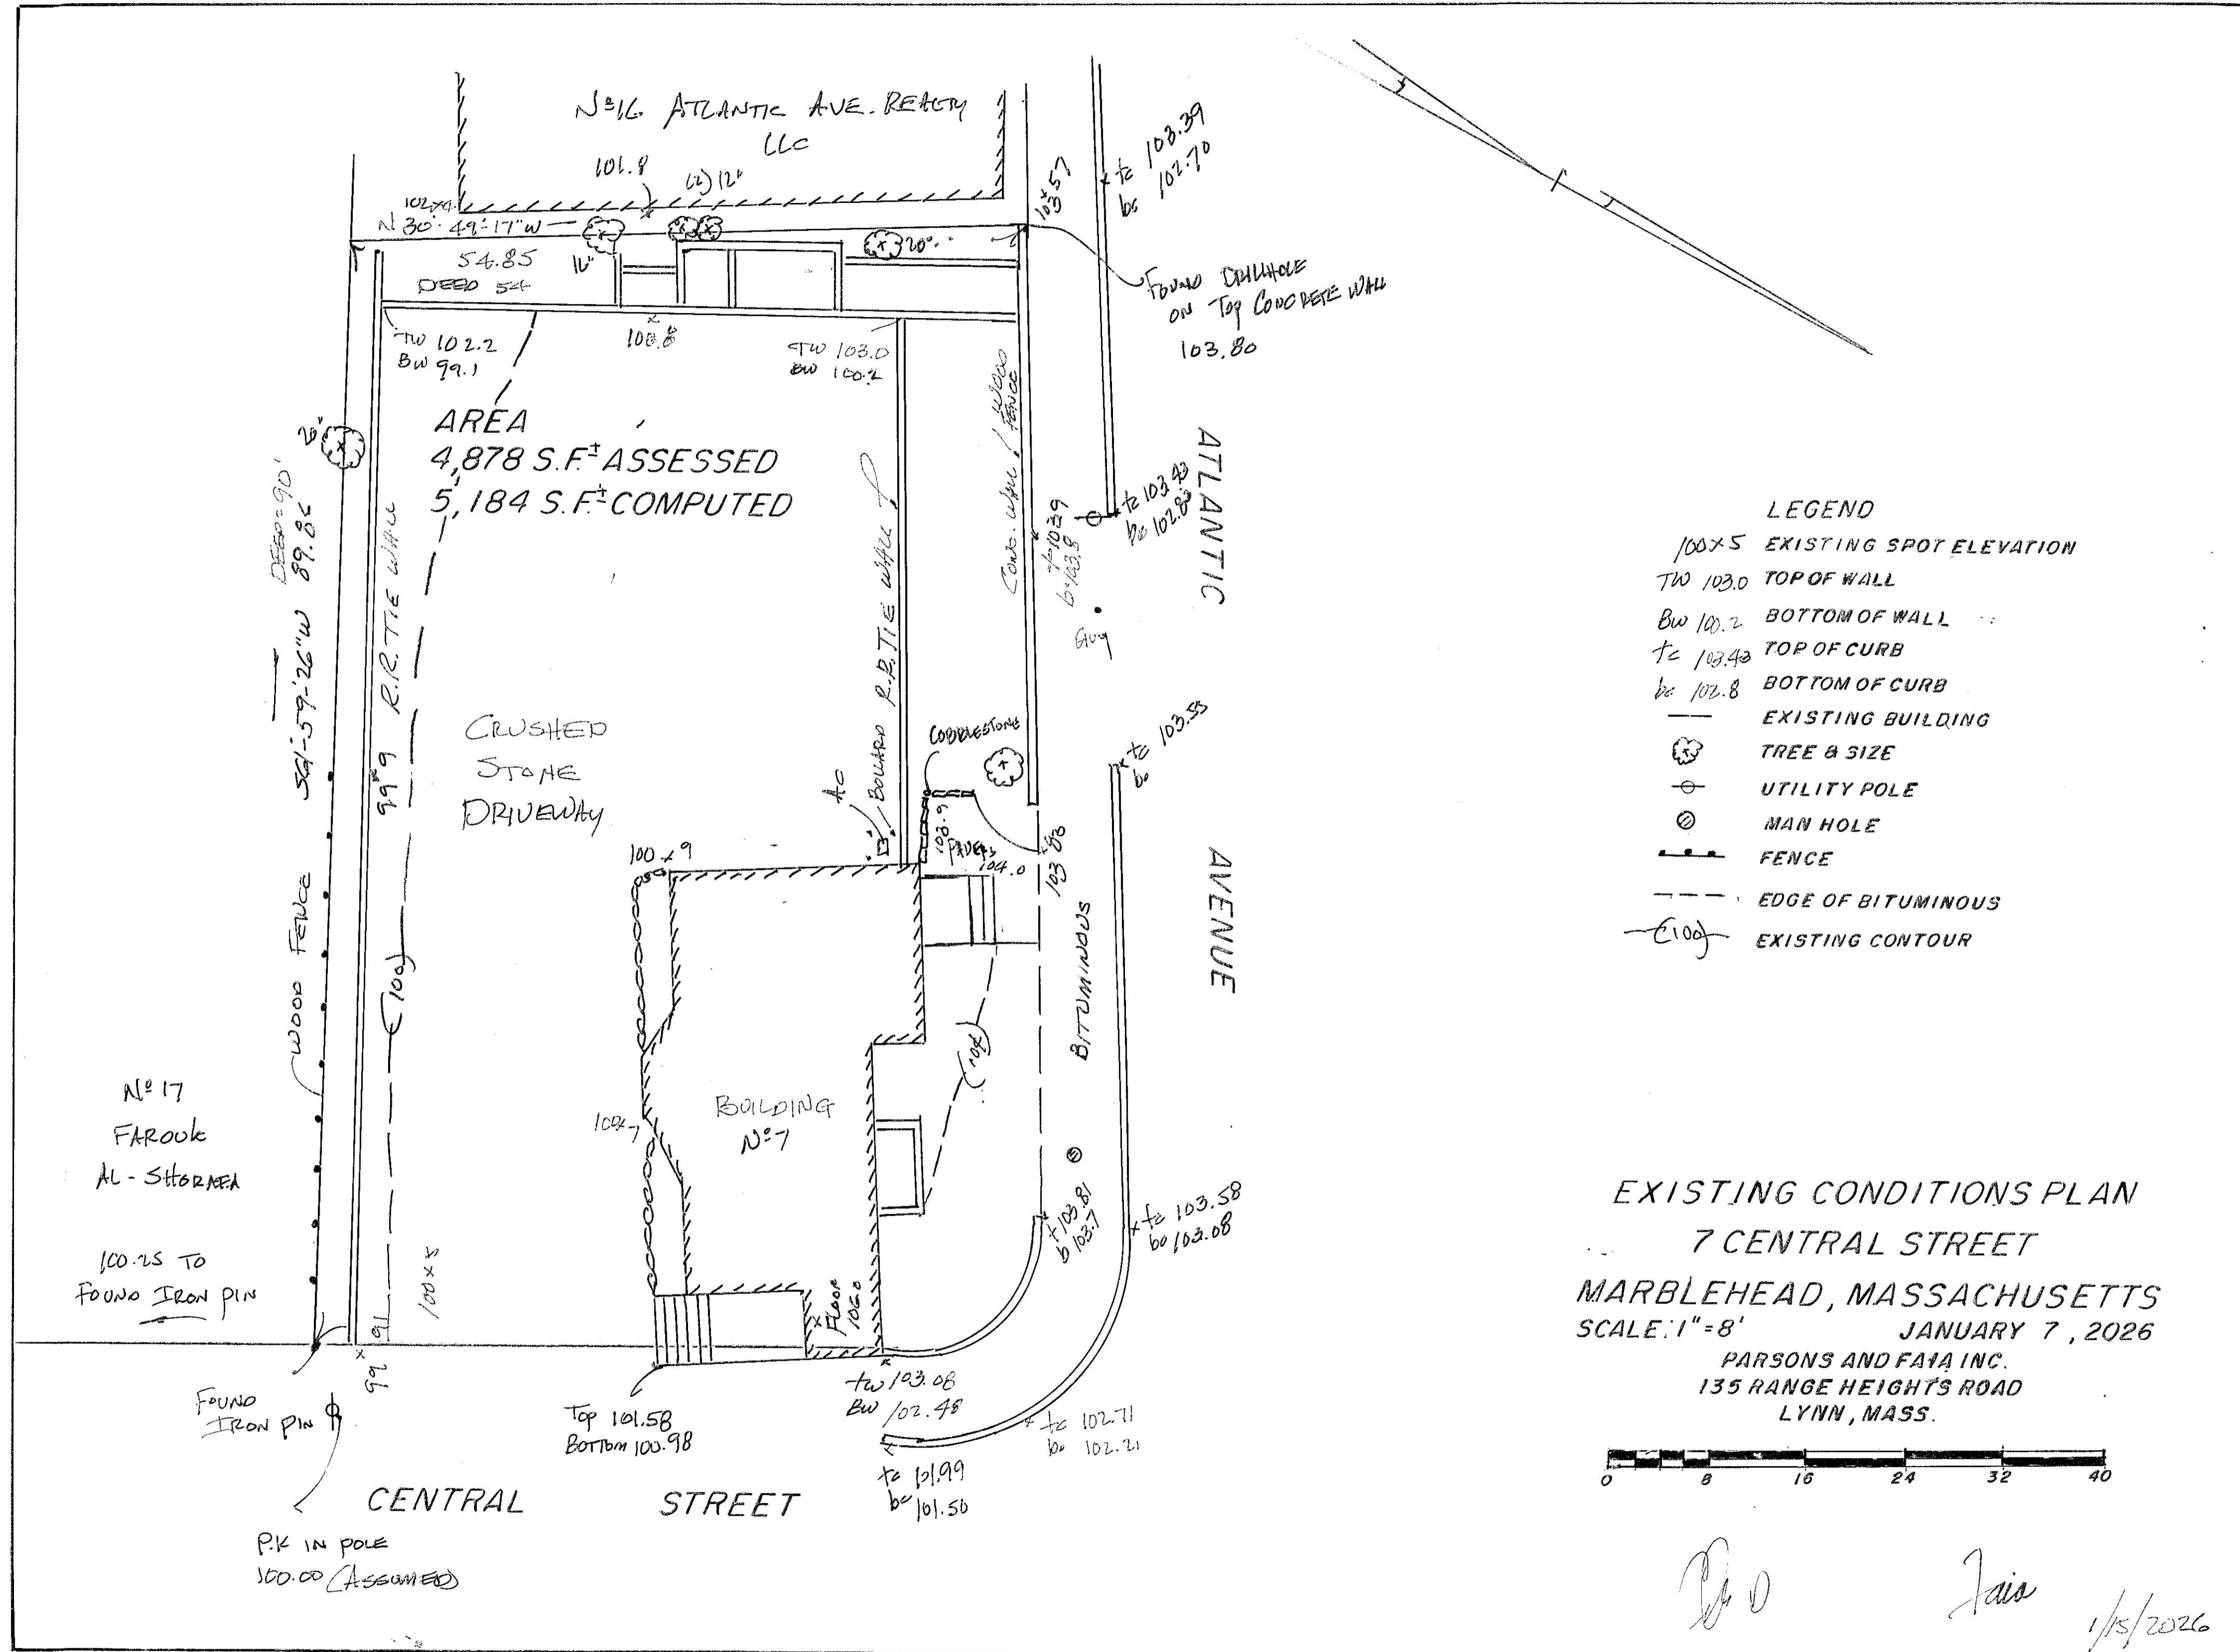 Nº16 ATLANTIC AVE. REALTY
LLC
101.8
(2) 12"
102x4
N 30°-49'-17"W
54.85
DEED 54
16"
20"
103x57
tc 103.39
bc 102.70
FOUND DRILLHOLE
ON TOP CONCRETE WALL
103.80
TW 102.2
BW 99.1
TW 103.0
BW 100.2
AREA
4,878 S.F.± ASSESSED
5,184 S.F.± COMPUTED
20"
DEED=90'
89.86
R.R. TIE WALL
99x9
WOOD FENCE
CONC. WALL / WOOD
FENCE
R.R. TIE WALL
BOLLARD
AC
tc 103.43
bc 102.83
Guy
ATLANTIC
AVENUE
CRUSHED
STONE
DRIVEWAY
COBBLESTONE
tc 103.53
bc
103.9
PAVERS
104.0
103x83
100x9
BITUMINOUS
(100)
(104)
BUILDING
Nº7
Nº 17
FAROUK
AL-SHORAFA
100.25 TO
FOUND IRON PIN
100x5
t 103.81
b 103.7
tc 103.58
bc 103.08
FLOOR
106.0
99x91
FOUND
IRON PIN
TOP 101.58
BOTTOM 100.98
tw 103.08
BW 102.48
tc 102.71
bc 102.21
tc 101.99
bc 101.50
CENTRAL STREET
P.K IN POLE
100.00 (ASSUMED)
LEGEND
100x5 EXISTING SPOT ELEVATION
TW 103.0 TOP OF WALL
BW 100.2 BOTTOM OF WALL
tc 103.43 TOP OF CURB
bc 102.8 BOTTOM OF CURB
EXISTING BUILDING
TREE & SIZE
UTILITY POLE
MAN HOLE
FENCE
EDGE OF BITUMINOUS
(100) EXISTING CONTOUR
EXISTING CONDITIONS PLAN
7 CENTRAL STREET
MARBLEHEAD, MASSACHUSETTS
SCALE: 1"=8' JANUARY 7, 2026
PARSONS AND FAIA INC.
135 RANGE HEIGHTS ROAD
LYNN, MASS.
0 8 16 24 32 40
Faia
1/15/2026